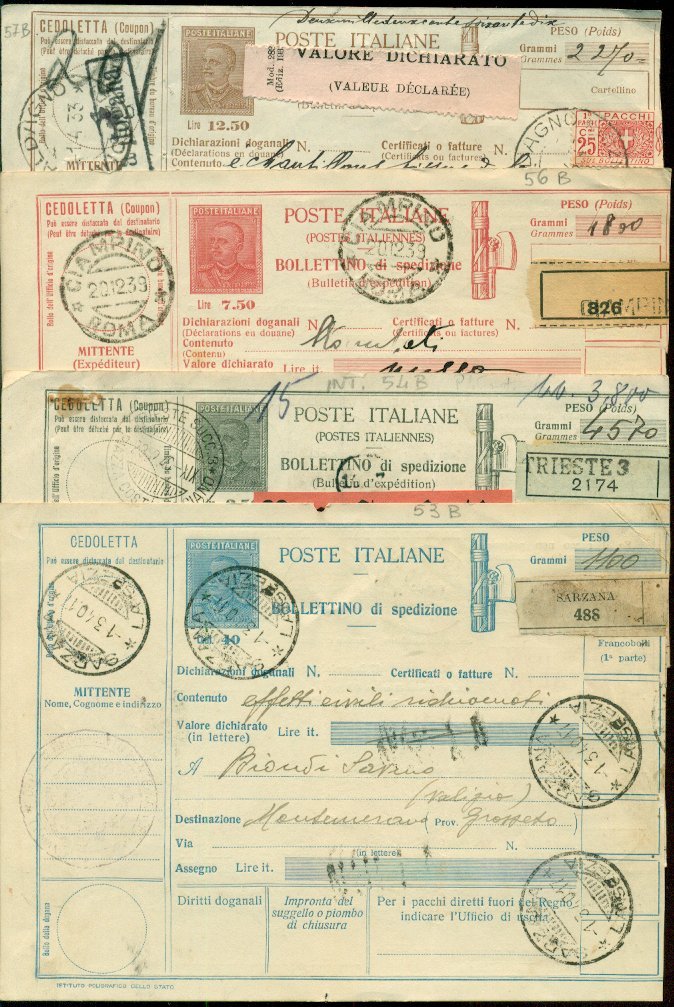 57B
CEDOLETTA (Coupon)
Può essere distaccata dal destinatario
(Peut être détaché par le destinataire)
Bollo dell'Ufficio d'origine
MITTENTE
POSTE ITALIANE
Mod. 288
VALORE DICHIARATO
(VALEUR DÉCLARÉE)
Lire 12.50
PESO (Poids)
Grammi
Grammes
2270=
Cartellino
Dichiarazioni doganali
(Déclarations en douane)
Certificati o fatture
(Certificats ou factures)
N.
Contenuto
PACCHI
25
56 B
CEDOLETTA (Coupon)
Può essere distaccata dal destinatario
(Peut être détaché par le destinataire)
Bollo dell'Ufficio d'origine
CIAMPINO
20.12.39
* ROMA *
MITTENTE
(Expéditeur)
POSTE ITALIANE
Lire 7.50
POSTE ITALIANE
(POSTES ITALIENNES)
BOLLETTINO di spedizione
(Bulletin d'expédition)
CIAMPINO
20.12.39
ROMA
PESO (Poids)
Grammi
Grammes
1800
826
Dichiarazioni doganali
(Déclarations en douane)
N.
Certificati o fatture
(Certificats ou factures)
N.
Contenuto
(Contenu)
Valore dichiarato
Lire it.
nulla
INT. 54B
15
CEDOLETTA (Coupon)
Può essere distaccata dal destinatario
(Peut être détaché par le destinataire)
POSTE ITALIANE
POSTE ITALIANE
(POSTES ITALIENNES)
BOLLETTINO di spedizione
(Bulletin d'expédition)
PESO (Poids)
Grammi
Grammes
4570
TRIESTE 3
2174
53 B
CEDOLETTA
Può essere distaccata dal destinatario
Bollo dell'Ufficio d'origine
SARZANA * LA SPEZIA *
-1.3.40.
MITTENTE
Nome, Cognome e indirizzo
Bollo della dogana
POSTE ITALIANE
POSTE ITALIANE
BOLLETTINO di spedizione
SARZANA * LA SPEZIA *
PESO
Grammi
1100
SARZANA
488
Francobolli
(1ª parte)
Dichiarazioni doganali N.
Certificati o fatture N.
Contenuto effetti civili
Valore dichiarato
(in lettere)
Lire it.
A Biondi
(Valigio)
Destinazione Montemerano (Prov. Grosseto
Via
N.
(in lettere)
Assegno Lire it.
SARZANA * LA SPEZIA *
-1.3.40.
Diritti doganali
Impronta del
suggello o piombo
di chiusura
Per i pacchi diretti fuori del Regno
indicare l'Ufficio di uscita
SARZANA * LA SPEZIA *
ISTITUTO POLIGRAFICO DELLO STATO